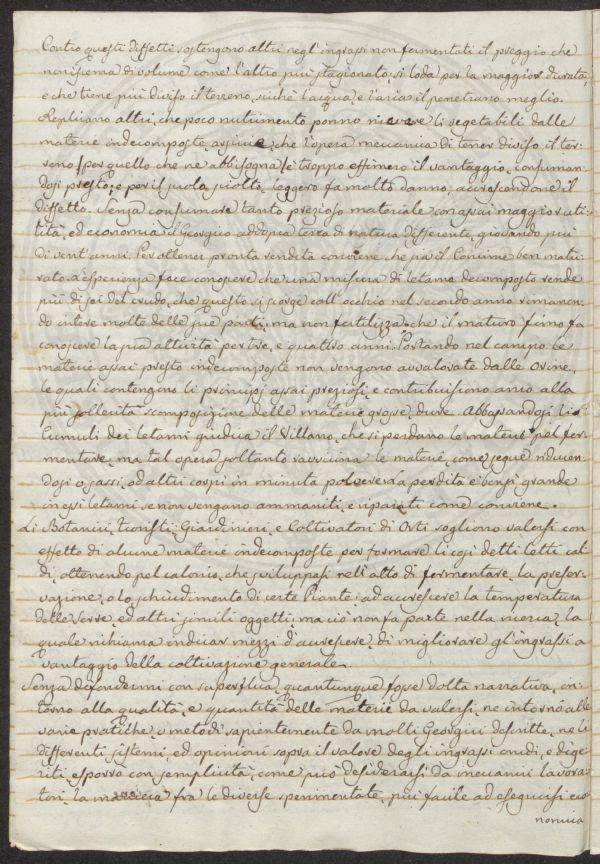 Contro questi diffetti sostengono altri negl'ingrassi non fermentati il preggio che
non si scema di volume come l'altro più stagionato, si loda per la maggior durata,
e che tiene più diviso il terreno, sicchè l'acqua, e l'aria il penetrano meglio.
Repliano altri, che poco nutrimento ponno ricevere li vegetabili dalle
materie indecomposte, arsiccie, che l'opera meccanica di tener diviso il ter-
reno /per quello che ne abbisogna/ è troppo effimero il vantaggio, consuman-
dosi presto, e per il suolo sciolto, leggero fa molto danno, accrescendone il
diffetto. Senza consumare tanto prezioso materiale con assai maggior uti-
lità, ed economia il Georgico addopra terra di natura differente, giovando più
di vent'anni. Per ottener pronta rendita conviene che sia il Concime ben matu-
rato. L'esperienza fece conoscere che una misura di letame decomposto rende
più di sei del crudo, che questo si scorge coll'occhio nel secondo anno rimanen-
do intere molte delle sue parti, ma non fertilizza, che il maturo fimo fa
conoscere la sua attività per tre, e quattro anni. Portando nel campo le
materie assai presto indecomposte non vengono avvalorate dalle Orine,
le quali contengono li principj assai preziosi, e contribuiscono anco alla
più sollecita scomposizione delle materie grosse, dure. Abbassandosi li
Cumuli dei letami giudica il Villano, che si perdano le materie pel fer-
mentare, ma tal opera soltanto ravvicina le materie, come segue riducen-
dosi i sassi, od altri corpi in minuta polvere. La perdita è bensì grande
in essi letami, se non vengano ammaniti, e riparati come conviene.
Li Botanici, Fioristi, Giardinieri, e Coltivatori di Orti sogliono valersi con
effetto di alcune materie indecomposte per formare li così detti letti cal-
di, ottenendo pel calorico, che sviluppasi nell'atto di fermentare, la preser-
vazione, o lo schiudimento di certe Piante; ad accrescere la temperatura
delle serre, ed altri simili oggetti, ma ciò non fa parte nella ricerca, la
quale richiama indicar mezzi d'accrescere, di migliorare gl'ingrassi a
vantaggio della coltivazione generale.
Senza difondermi con superflua, quantunque fosse dotta narrativa, in-
torno alla qualità, e quantità delle materie da valersi, ne intorno alle
varie pratiche, o metodi sapientemente da molti Georgici descritte, ne li
differenti sistemi, ed opinioni sopra il valore degli ingrassi crudi, e dige-
riti, esporrò con semplicità, come può desiderarsi da meccanici lavora-
tori, la maniera fra le diverse sperimentate, più facile ad eseguirsi, eco
nomica